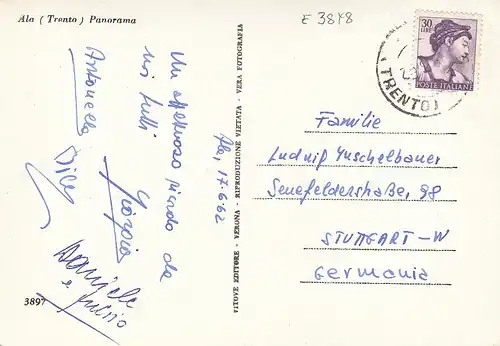 Ala ( Trento ) Panorama
E 3848
Ala, 17-6-62
Un affettuoso ricordo da
noi tutti
Giorgio
Antonella
Daniele
e
3897
VITOVE EDITORE - VERONA - RIPRODUZIONE VIETATA - VERA FOTOGRAFIA
30
LIRE
POSTE ITALIANE
TRENTO
Familie
Ludwig Tuschelbauer
Senefelderstraße, 98
STUTTGART-W
Germania